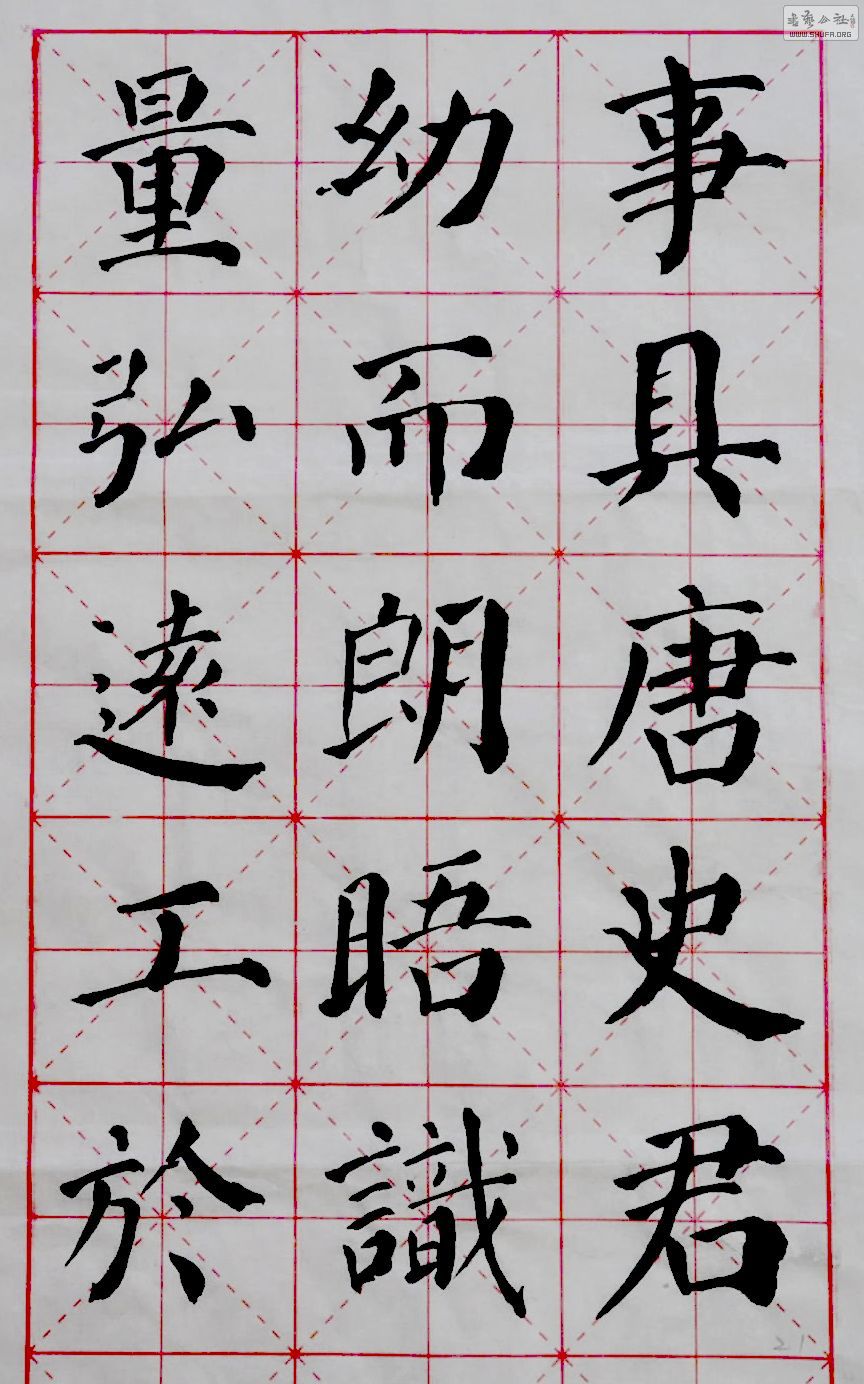 事具唐史君
幼而朗晤識
量弘遠工於
書藝公社
WWW.SHUFA.ORG
21